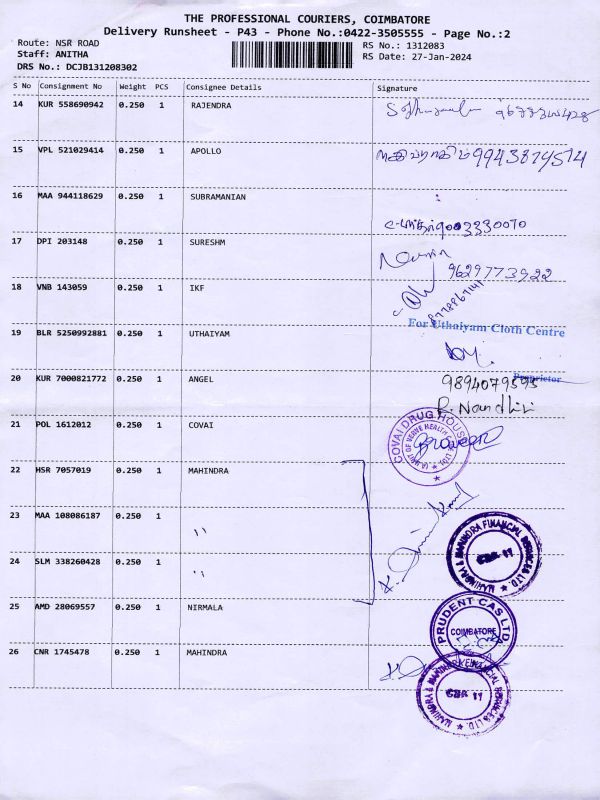 THE PROFESSIONAL COURIERS, COIMBATORE
Delivery Runsheet - P43 - Phone No.:0422-3505555 - Page No.:2
Route: NSR ROAD RS No.: 1312083
Staff: ANITHA RS Date: 27-Jan-2024
DRS No.: DCJB131208302
S No Consignment No Weight PCS Consignee Details Signature
14 KUR 558690942 0.250 1 RAJENDRA
15 VPL 521029414 0.250 1 APOLLO
16 MAA 944118629 0.250 1 SUBRAMANIAN
9003330070
17 DPI 203148 0.250 1 SURESHM
9629773922
18 VNB 143059 0.250 1 IKF
For Uthaiyam Cloth Centre
19 BLR 5250992881 0.250 1 UTHAIYAM
Proprietor
20 KUR 7000821772 0.250 1 ANGEL 9894079595
R. Nandhini
21 POL 1612012 0.250 1 COVAI
COVAI DRUG HOUSE
Praveen
22 HSR 7057019 0.250 1 MAHINDRA
23 MAA 108086187 0.250 1 "
MAHINDRA & MAHINDRA FINANCIAL SERVICES LTD.
CBE 11
24 SLM 338260428 0.250 1 "
25 AMD 28069557 0.250 1 NIRMALA
PRUDENT CAS LTD.
COIMBATORE
26 CNR 1745478 0.250 1 MAHINDRA
MAHINDRA & MAHINDRA FINANCIAL SERVICES LTD.
CBE 11